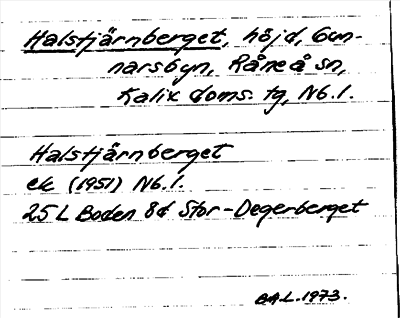 Halstjärnberget, höjd, Gun-
narsbyn, Råneå sn,
Kalix doms. tg, Nb.l.
Halstjärnberget
ek (1951) Nb.l.
25 L Boden 8d Stor-Degerberget
BAL. 1973.